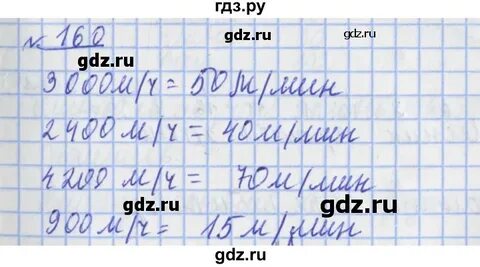 гдз.ру
№ 160
gdz.ru gdz.ru
3000м/ч = 50м/мин
gdz.ru gdz.ru
2400м/ч = 40м/мин
gdz.ru gdz.ru
4200 м/ч = 70м/мин
gdz.ru gdz.ru
900м/ч = 15м/мин
gdz.ru